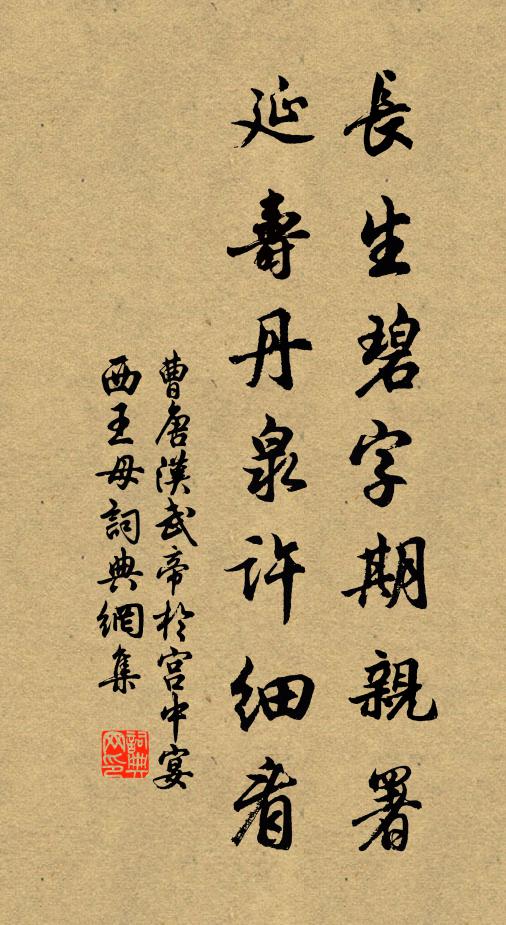 長生碧字期親署
延壽丹泉許細看
曹唐漢武帝於宮中宴
西王母詞典網集
詞典網印